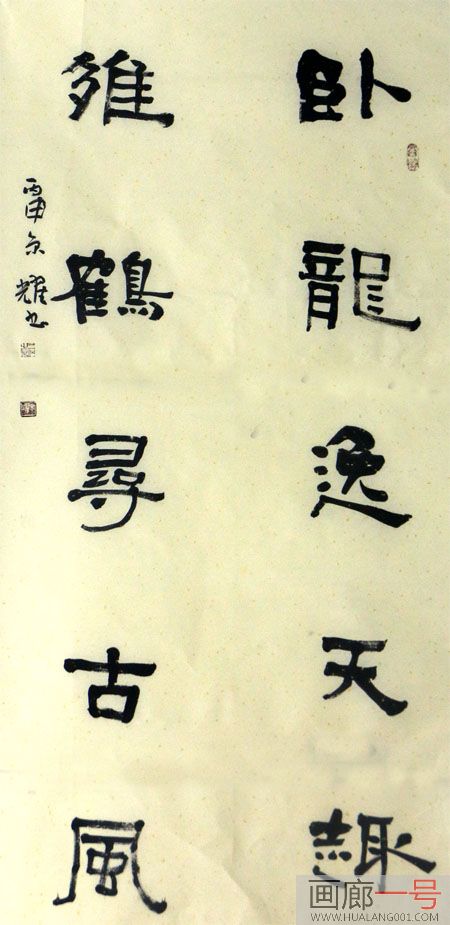 卧龍逸天趣
雏鶴尋古風
丙申京耀书
画廊一号
WWW.HUALANG001.COM